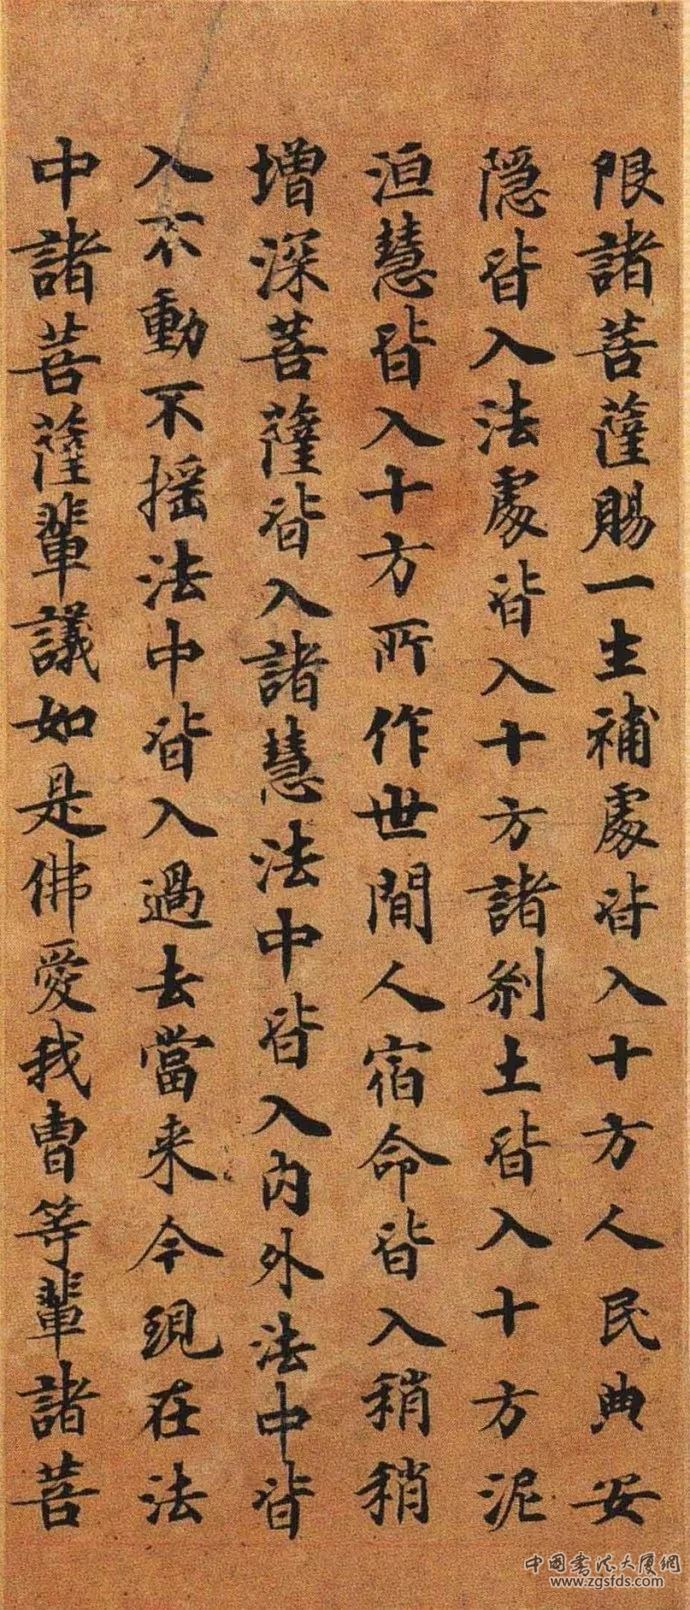 限諸菩薩賜一生補處皆入十方人民典安
隱皆入法處皆入十方諸刹土皆入十方泥
洹慧皆入十方所作世間人宿命皆入稍稍
增深菩薩皆入諸慧法中皆入内外法中皆
入不動不摇法中皆入過去當来今現在法
中諸菩薩輩議如是佛愛我曹等輩諸菩
中國書法大厦網
www.zgsfds.com